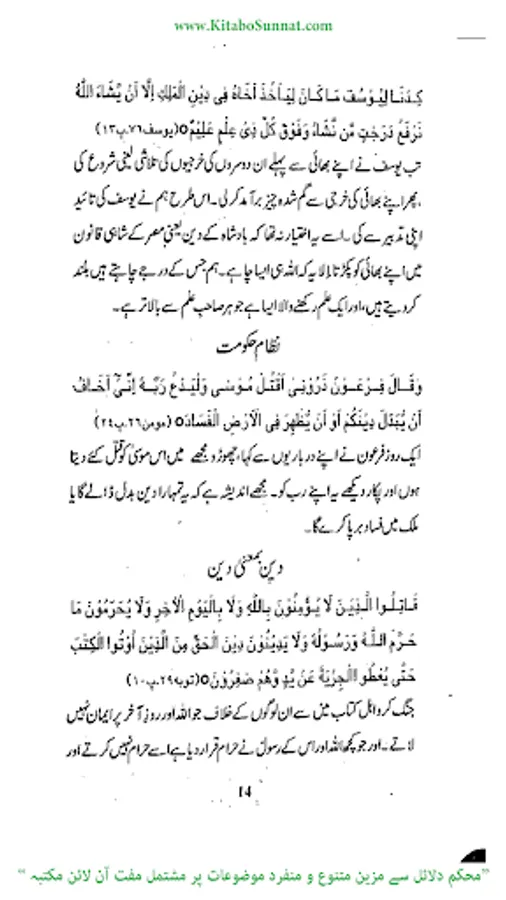 www.KitaboSunnat.com
كِدْنَا لِيُوْسُفَ مَا كَانَ لِيَاْخُذَ اَخَاهُ فِى دِيْنِ الْمَلِكِ اِلَّا اَنْ يَّشَاءَ اللّٰهُ
نَرْفَعُ دَرَجٰتٍ مَّنْ نَّشَاءُ وَفَوْقَ كُلِّ ذِىْ عِلْمٍ عَلِيْمٌ٥(یوسف۷۶پ۱۳)
تب یوسف نے اپنے بھائی سے پہلے ان دوسروں کی خرجیوں کی تلاشی لینی شروع کی
،پھر اپنے بھائی کی خرجی سے گم شدہ چیز برآمد کرلی۔ اس طرح ہم نے یوسف کی تائید
اپنی تدبیر سے کی۔ اسے یہ اختیار نہ تھا کہ بادشاہ کے دین یعنی مصر کے شاہی قانون
میں اپنے بھائی کو پکڑتا اِلا یہ کہ اللہ ہی ایسا چاہے۔ ہم جس کے درجے چاہتے ہیں بلند
کردیتے ہیں، اور ایک علم رکھنے والا ایسا ہے جو ہر صاحب علم سے بالاتر ہے۔
نظام حکومت
وَقَالَ فِرْعَوْنُ ذَرُوْنِىْ اَقْتُلْ مُوْسٰى وَلْيَدْعُ رَبَّهٗ اِنِّىْٓ اَخَافُ
اَنْ يُّبَدِّلَ دِيْنَكُمْ اَوْ اَنْ يُّظْهِرَ فِى الْاَرْضِ الْفَسَادَ٥ (مومن۲۶پ۲۴)
ایک روز فرعون نے اپنے درباریوں سے کہا، چھوڑو مجھے میں اس موسیٰ کو قتل کئے دیتا
ہوں اور پکار دیکھے یہ اپنے رب کو۔ مجھے اندیشہ ہے کہ یہ تمہارا دین بدل ڈالے گا یا
ملک میں فساد برپا کرے گا۔
دین بمعنیٰ دین
قَاتِلُوا الَّذِيْنَ لَا يُؤْمِنُوْنَ بِاللّٰهِ وَلَا بِالْيَوْمِ الْاٰخِرِ وَلَا يُحَرِّمُوْنَ مَا
حَرَّمَ اللّٰهُ وَرَسُوْلُهٗ وَلَا يَدِيْنُوْنَ دِيْنَ الْحَقِّ مِنَ الَّذِيْنَ اُوْتُوا الْكِتٰبَ
حَتّٰى يُعْطُوا الْجِزْيَةَ عَنْ يَّدٍ وَّهُمْ صٰغِرُوْنَ٥(توبہ۲۹پ۱۰)
جنگ کرو اہل کتاب میں سے ان لوگوں کے خلاف جو اللہ اور روز آخر پر ایمان نہیں
لاتے۔ اور جو کچھ اللہ اور اس کے رسولؐ نے حرام قرار دیا ہے اسے حرام نہیں کرتے اور
14
”محکم دلائل سے مزین متنوع و منفرد موضوعات پر مشتمل مفت آن لائن مکتبہ“